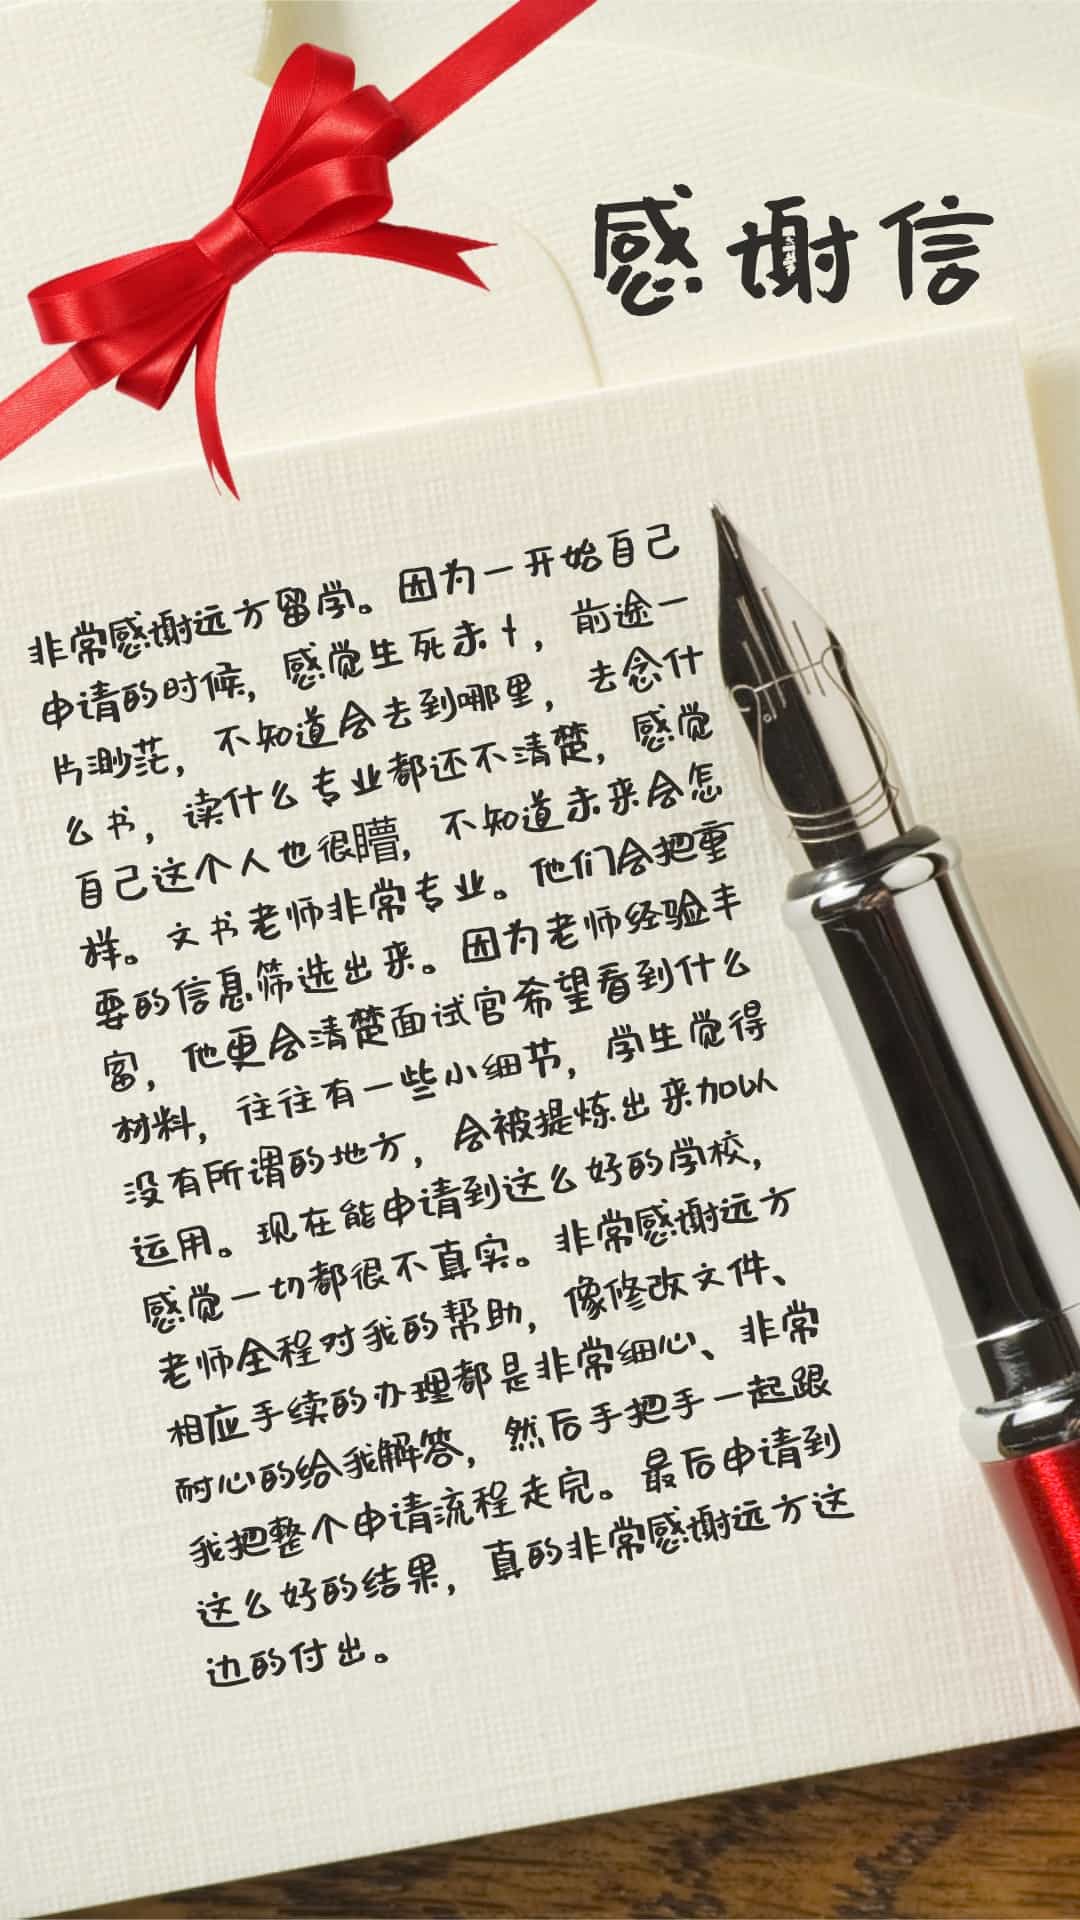 感谢信
非常感谢远方留学。因为一开始自己
申请的时候，感觉生死未卜，前途一
片渺茫，不知道会去到哪里，去念什
么书，读什么专业都还不清楚，感觉
自己这个人也很矒，不知道未来会怎
样。文书老师非常专业。他们会把重
要的信息筛选出来。因为老师经验丰
富，他更会清楚面试官希望看到什么
材料，往往有一些小细节，学生觉得
没有所谓的地方，会被提炼出来加以
运用。现在能申请到这么好的学校，
感觉一切都很不真实。非常感谢远方
老师全程对我的帮助，像修改文件、
相应手续的办理都是非常细心、非常
耐心的给我解答，然后手把手一起跟
我把整个申请流程走完。最后申请到
这么好的结果，真的非常感谢远方这
边的付出。